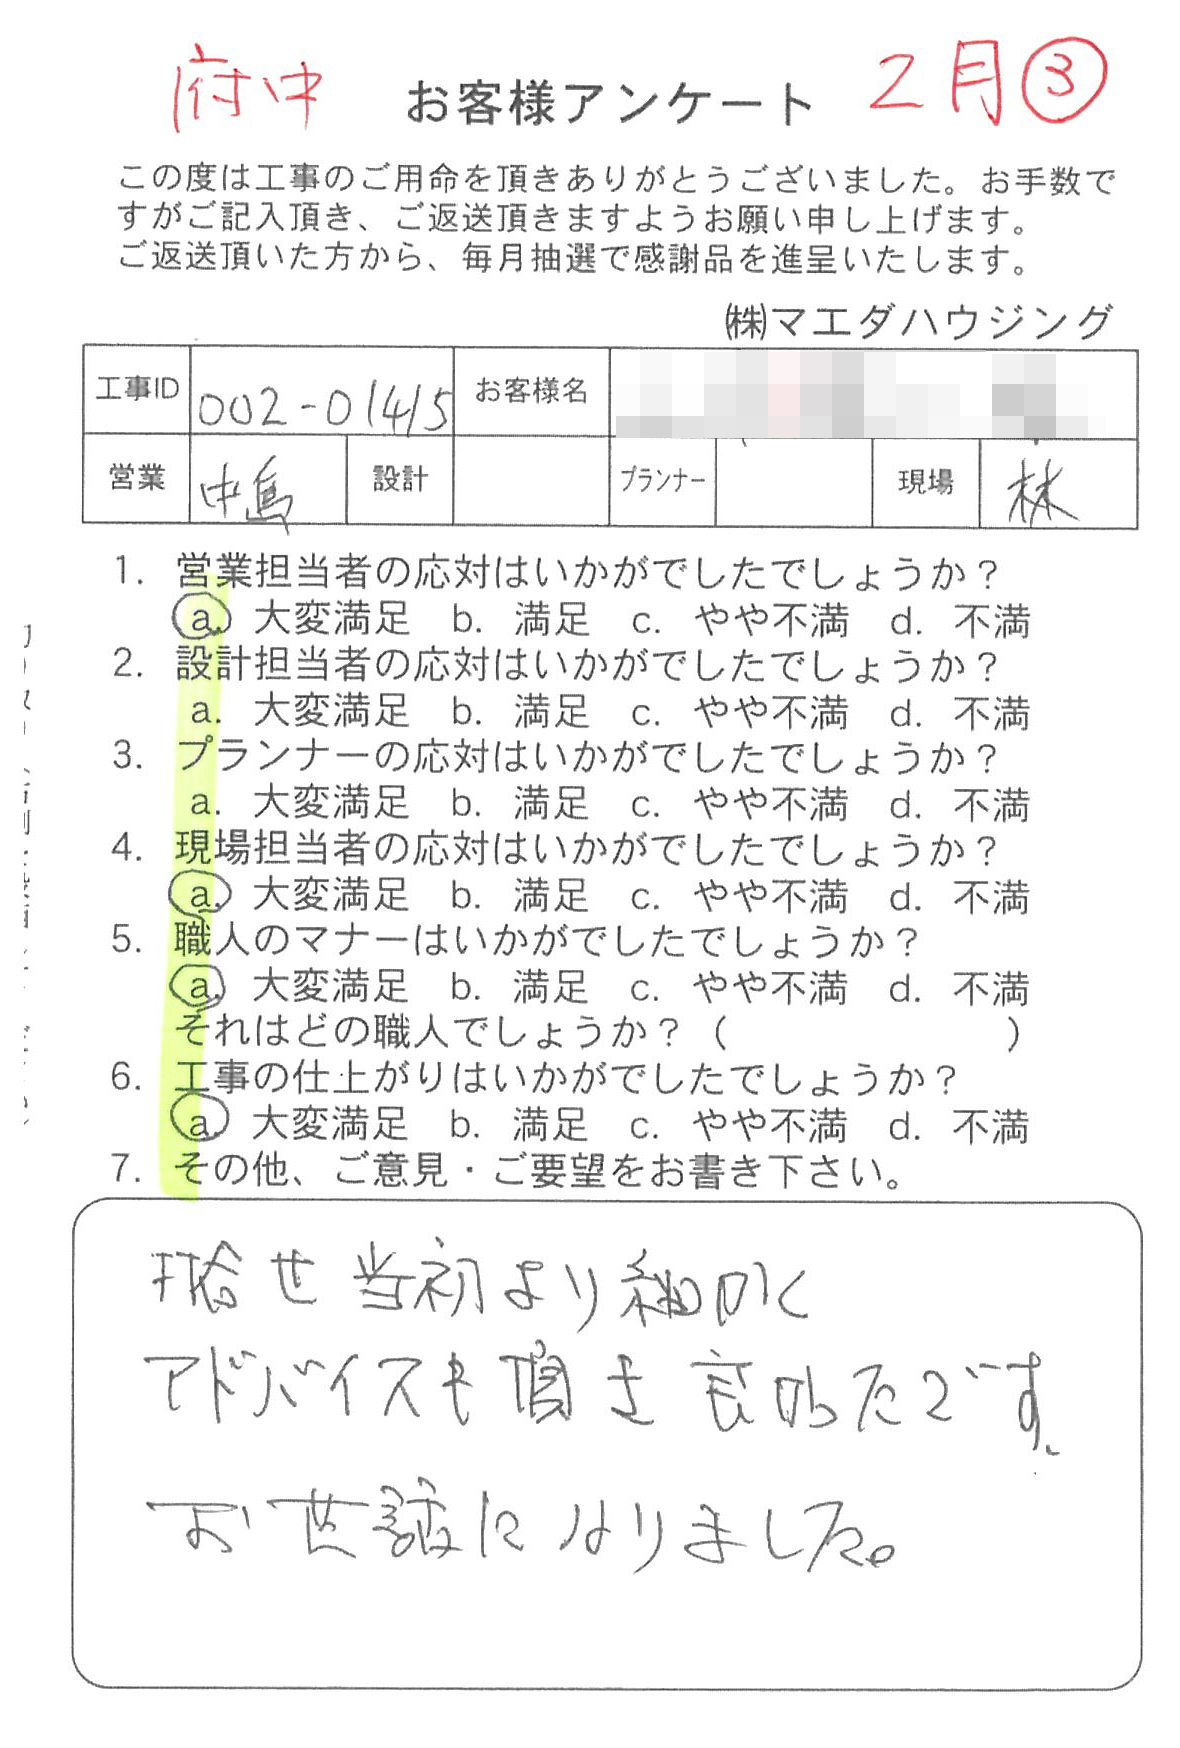 府中 お客様アンケート 2月③
この度は工事のご用命を頂きありがとうございました。お手数で
すがご記入頂き、ご返送頂きますようお願い申し上げます。
ご返送頂いた方から、毎月抽選で感謝品を進呈いたします。
㈱マエダハウジング
工事ID 002-01415 お客様名
営業 中島 設計 プランナー 現場 林
1. 営業担当者の応対はいかがでしたでしょうか？
a. 大変満足 b. 満足 c. やや不満 d. 不満
2. 設計担当者の応対はいかがでしたでしょうか？
a. 大変満足 b. 満足 c. やや不満 d. 不満
3. プランナーの応対はいかがでしたでしょうか？
a. 大変満足 b. 満足 c. やや不満 d. 不満
4. 現場担当者の応対はいかがでしたでしょうか？
a. 大変満足 b. 満足 c. やや不満 d. 不満
5. 職人のマナーはいかがでしたでしょうか？
a. 大変満足 b. 満足 c. やや不満 d. 不満
それはどの職人でしょうか？（ ）
6. 工事の仕上がりはいかがでしたでしょうか？
a. 大変満足 b. 満足 c. やや不満 d. 不満
7. その他、ご意見・ご要望をお書き下さい。
打合せ当初より細かく
アドバイスも頂き良かったです。
お世話になりました。